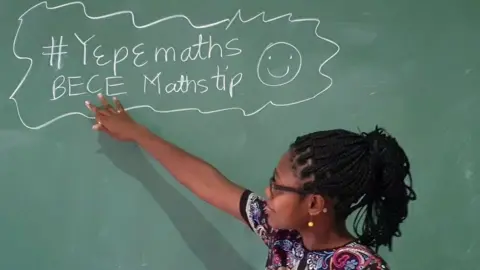 #Yɛpɛmaths
BECE Maths tip